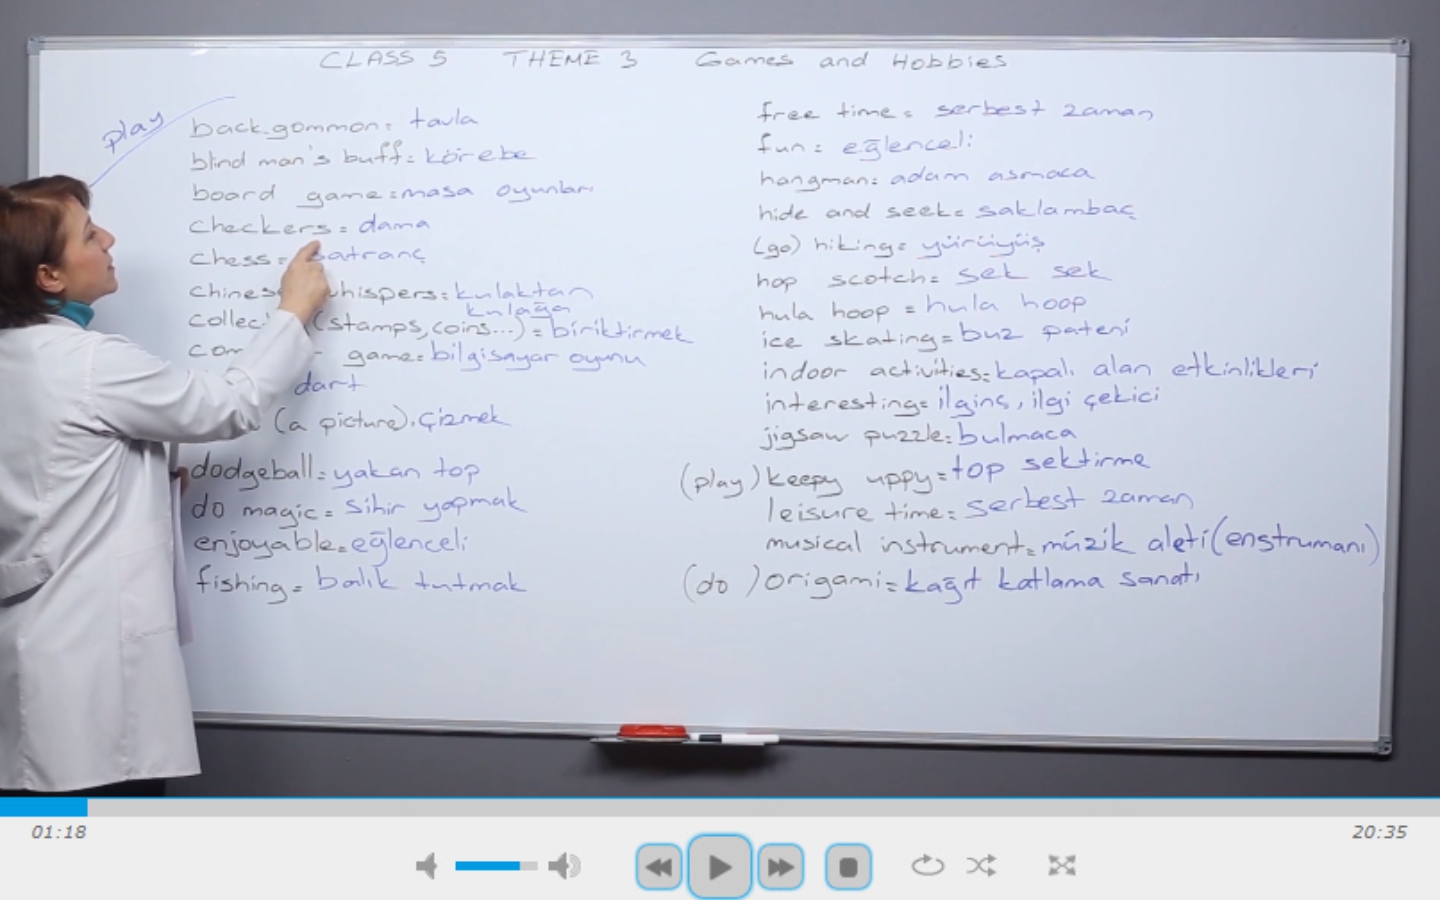 CLASS 5 THEME 3 Games and Hobbies
play
back gommon = tavla
blind man's buff = körebe
board game = masa oyunları
checkers = dama
chess = satranç
whispers = kulaktan
kulağa
(stamps, coins...) = biriktirmek
game = bilgisayar oyunu
dart
(a picture). çizmek
dodgeball = yakan top
do magic = sihir yapmak
enjoyable = eğlenceli
fishing = balık tutmak
free time = serbest zaman
fun = eğlenceli
hangman = adam asmaca
hide and seek = saklambaç
(go) hiking = yürüyüş
hop scotch = sek sek
hula hoop = hula hoop
ice skating = buz pateni
indoor activities = kapalı alan etkinlikleri
interesting = ilginç, ilgi çekici
jigsaw puzzle = bulmaca
(play) keepy uppy = top sektirme
leisure time = serbest zaman
musical instrument = müzik aleti (enstrumanı)
(do) origami = kağıt katlama sanatı
01:18
20:35